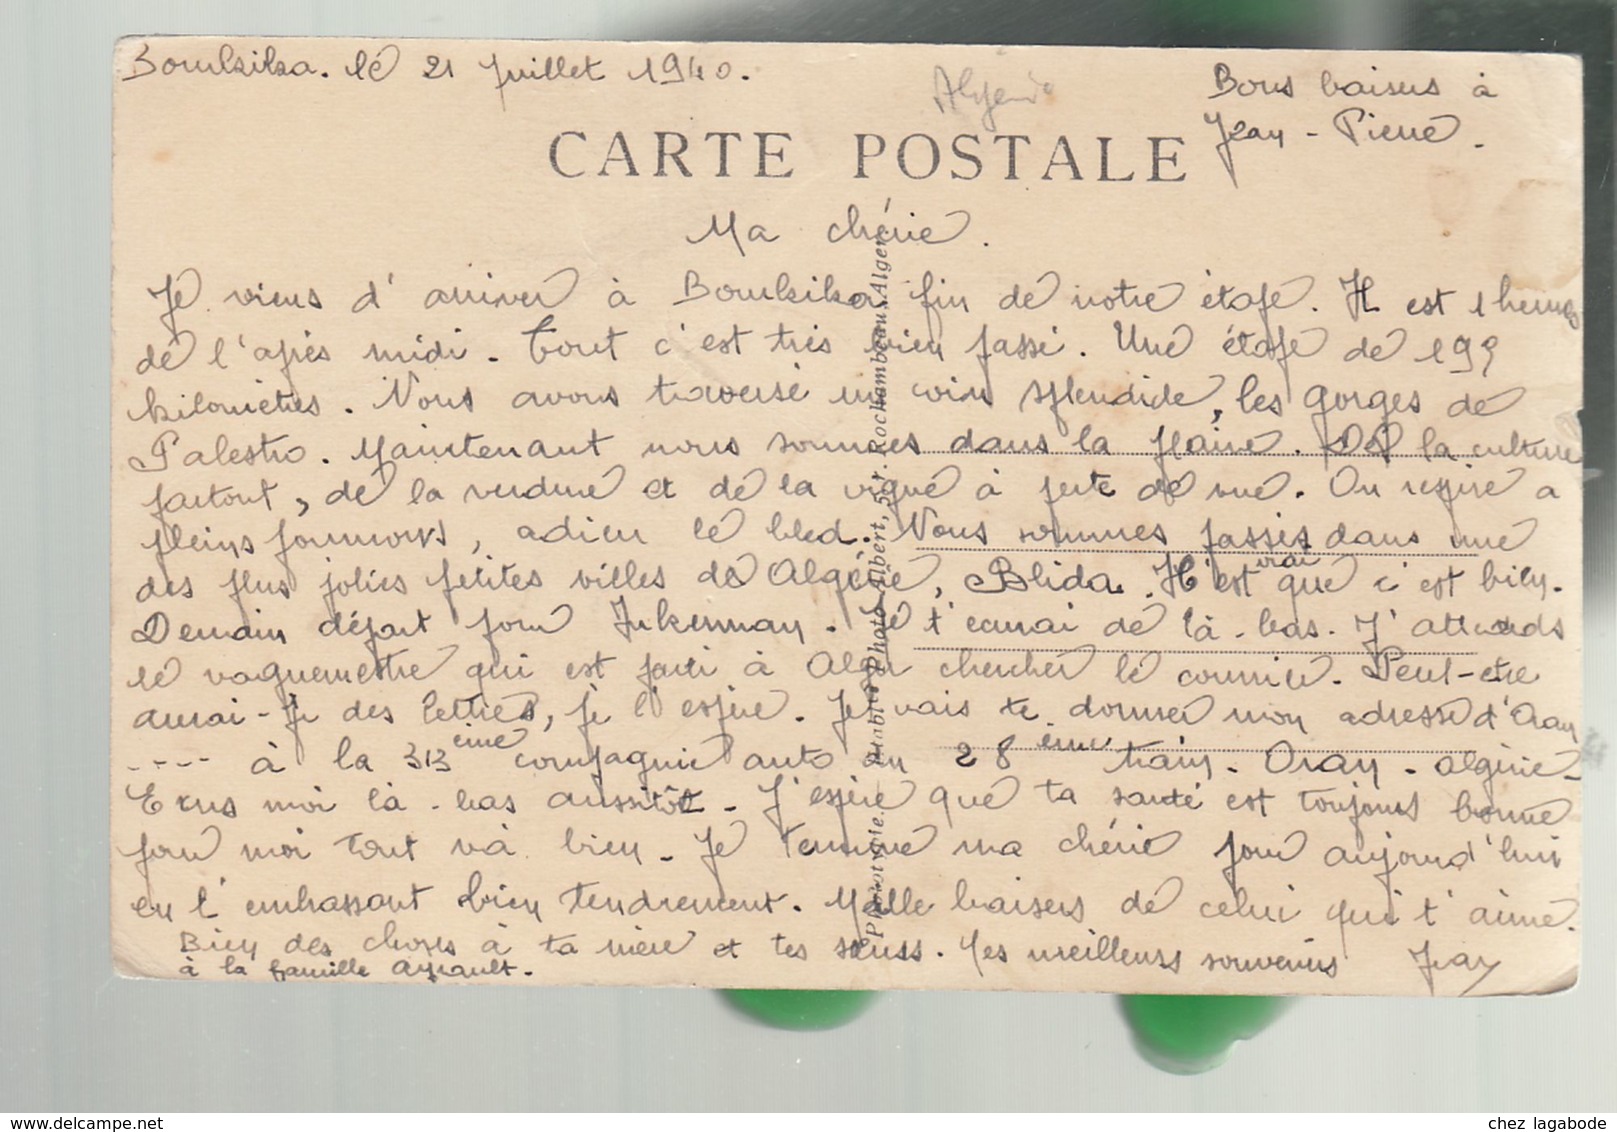 Bourkika. le 21 Juillet 1940.
Algérie
Bons baisers à
Jean-Pierre.
CARTE POSTALE
Ma chérie.
Je viens d'arriver à Bourkika fin de notre étape. Il est 1 heures
de l'après midi. Tout c'est très bien passé. Une étape de 199
kilomètres. Nous avons traversé un coin splendide, les gorges de
Palestro. Maintenant nous sommes dans la plaine. De la culture
partout, de la verdure et de la vigne à perte de vue. On respire a
pleins poumons, adieu le bled. Nous sommes passés dans une
des plus jolies petites villes de Algérie, Blida. Il est vrai que c'est bien.
Demain départ pour Inkerman. Je t'ecrirai de là-bas. J'attends
le vaguemestre qui est parti à Alger chercher le courrier. Peut-etre
aurai-je des lettres, je l'espère. Je vais te donner mon adresse d'Oran
---- à la 313 eme compagnie auto du 28 ème train. Oran. Algérie.
Ecris moi là-bas aussitôt. J'espère que ta santé est toujours bonne
pour moi tout và bien. Je termine ma chérie pour aujourd'hui
en t'embrassant bien tendrement. Mille baisers de celui qui t'aime.
Bien des choses à ta mère et tes sœurs. Mes meilleurs souvenirs
à la famille Ayrault.
Jean
Phototypie. Etablis Photo-Albert, 5, r. Rochambeau, Alger.
chez lagabode